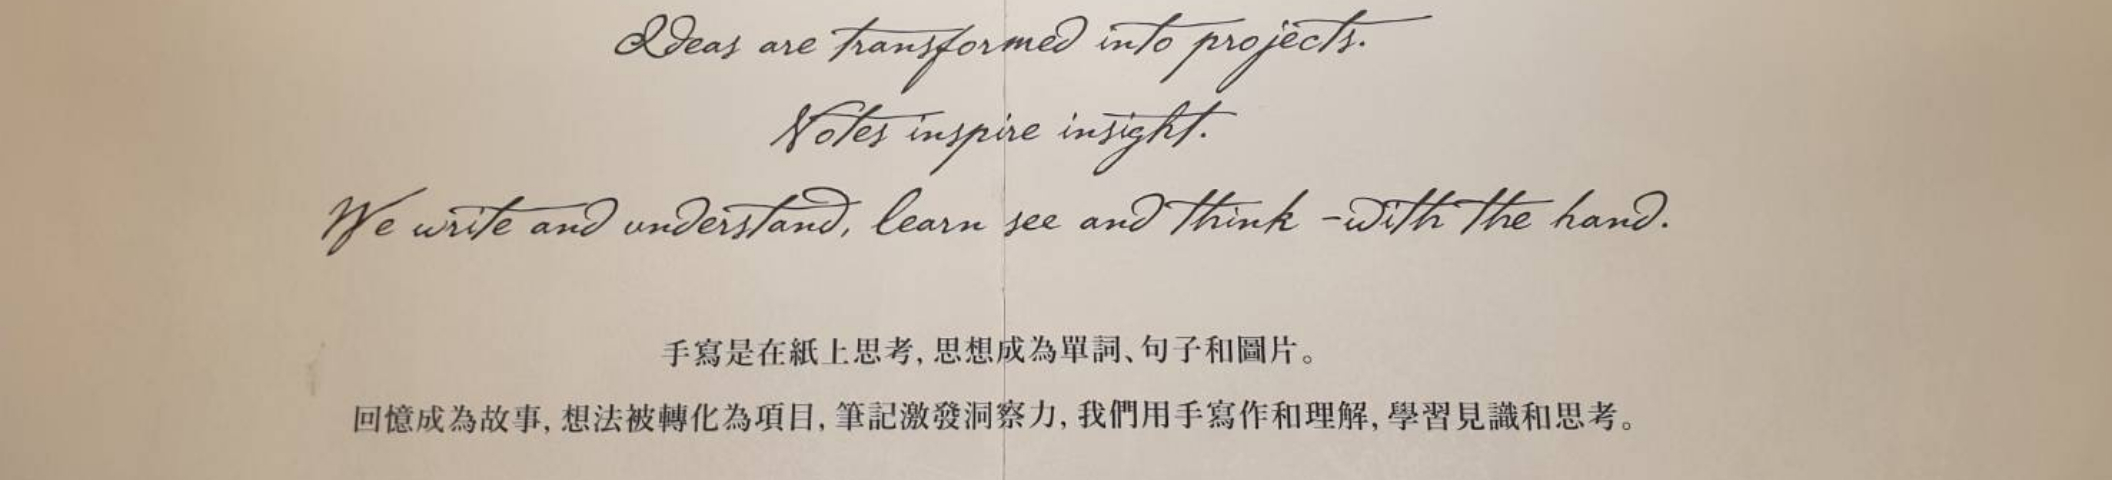 Ideas are transformed into projects.
Notes inspire insight.
We write and understand, learn see and think - with the hand.
手寫是在紙上思考, 思想成為單詞、句子和圖片。
回憶成為故事, 想法被轉化為項目, 筆記激發洞察力, 我們用手寫作和理解, 學習見識和思考。